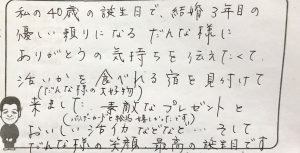 私の40歳の誕生日で、結婚3年目の
優しい頼りになるだんな様に
ありがとうの気持ちを伝えたくて、
活いかを食べれる宿を見付けて
(だんな様の大好物)
来ました。素敵なプレゼントと
(バースデーカードと絵も嬉しかったです)
おいしい活イカなどなど… そして
だんな様の笑顔、最高の誕生日です